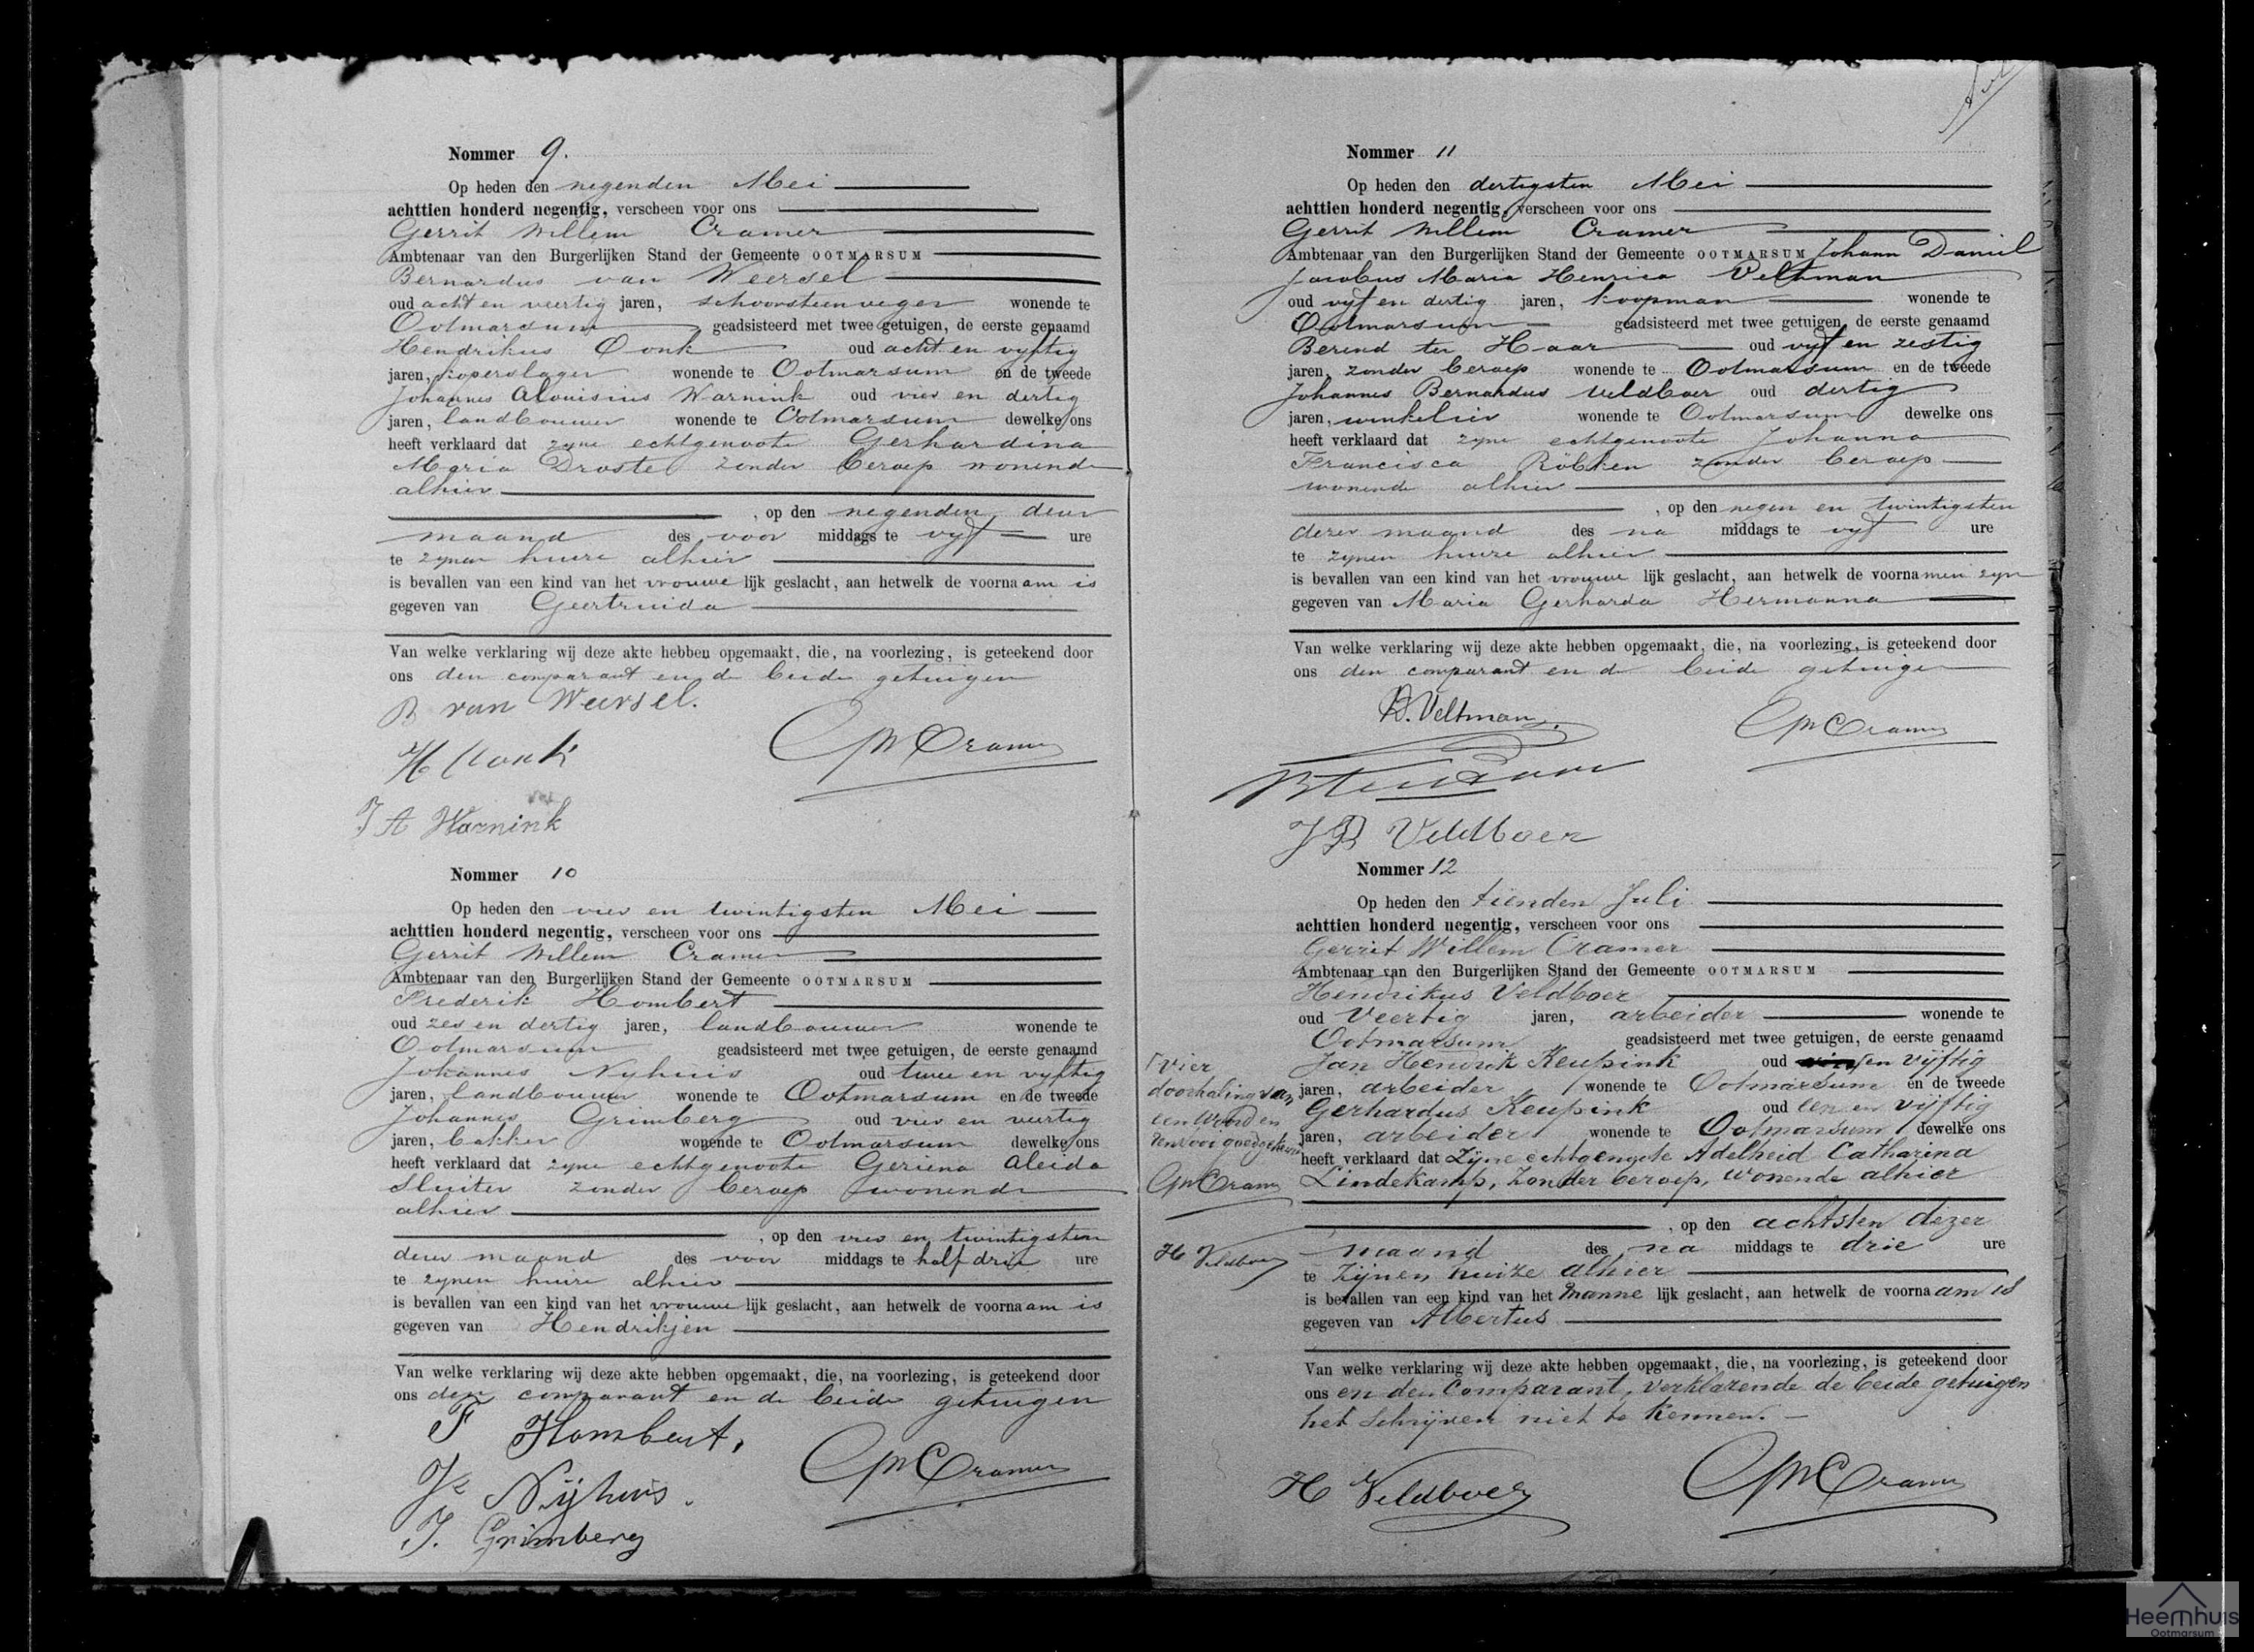 Nommer 9.
Op heden den negenden Mei
achttien honderd negentig, verscheen voor ons
Gerrit Willem Cramer
Ambtenaar van den Burgerlijken Stand der Gemeente OOTMARSUM
Bernardus van Weersel
oud acht en veertig jaren, schoorsteenveger wonende te
Ootmarsum geadsisteerd met twee getuigen, de eerste genaamd
Hendrikus Oonk oud acht en vyftig
jaren, koperslager wonende te Ootmarsum en de tweede
Johannes Alouisius Warnink oud vier en dertig
jaren, landbouwer wonende te Ootmarsum dewelke ons
heeft verklaard dat zyne echtgenoote Gerhardina
Maria Droste zonder beroep wonende
alhier
, op den negenden dezer
maand des voor middags te vyf ure
te zynen huize alhier
is bevallen van een kind van het vrouwe lijk geslacht, aan hetwelk de voornaam is
gegeven van Geertruida
Van welke verklaring wij deze akte hebben opgemaakt, die, na voorlezing, is geteekend door
ons den comparant en de beide getuigen
B van Weersel.
H Oonk GWCramer
J A Warnink
Nommer 10
Op heden den vier en twintigsten Mei
achttien honderd negentig, verscheen voor ons
Gerrit Willem Cramer
Ambtenaar van den Burgerlijken Stand der Gemeente OOTMARSUM
Frederik Hombert
oud zes en dertig jaren, landbouwer wonende te
Ootmarsum geadsisteerd met twee getuigen, de eerste genaamd
Johannes Nyhuis oud twee en vyftig
jaren, landbouwer wonende te Ootmarsum en de tweede
Johannes Grimberg oud vier en veertig
jaren, bakker wonende te Ootmarsum dewelke ons
heeft verklaard dat zyne echtgenoote Geriena Aleida
Sluiter zonder beroep wonende
alhier
, op den vier en twintigsten
dezer maand des voor middags te half drie ure
te zynen huize alhier
is bevallen van een kind van het vrouwe lijk geslacht, aan hetwelk de voornaam is
gegeven van Hendrikjen
Van welke verklaring wij deze akte hebben opgemaakt, die, na voorlezing, is geteekend door
ons den comparant en de beide getuigen
F Hombert,
GWCramer
Nijhuis.
J. Grimberg
Nommer 11
Op heden den dertigsten Mei
achttien honderd negentig, verscheen voor ons
Gerrit Willem Cramer
Ambtenaar van den Burgerlijken Stand der Gemeente OOTMARSUM Johann Daniel
Jacobus Maria Henrica Veltman
oud vyf en dertig jaren, koopman wonende te
Ootmarsum geadsisteerd met twee getuigen, de eerste genaamd
Berend ter Haar oud vyf en zestig
jaren, zonder beroep wonende te Ootmarsum en de tweede
Johannes Bernardus Veldboer oud dertig
jaren, winkelier wonende te Ootmarsum dewelke ons
heeft verklaard dat zyne echtgenoote Johanna
Francisca Röbken zonder beroep
wonende alhier
, op den negen en twintigsten
dezer maand des na middags te vyf ure
te zynen huize alhier
is bevallen van een kind van het vrouwe lijk geslacht, aan hetwelk de voornamen zyn
gegeven van Maria Gerharda Hermanna
Van welke verklaring wij deze akte hebben opgemaakt, die, na voorlezing, is geteekend door
ons den comparant en de beide getuigen
D. Veltman GWCramer
B ter Haar
J B Veldboer
Nommer 12
Op heden den tienden Juli
achttien honderd negentig, verscheen voor ons
Gerrit Willem Cramer
Ambtenaar van den Burgerlijken Stand der Gemeente OOTMARSUM
Hendrikus Veldboer
oud Veertig jaren, arbeider wonende te
Ootmarsum geadsisteerd met twee getuigen, de eerste genaamd
Jan Hendrik Keupink oud en vijftig
jaren, arbeider wonende te Ootmarsum en de tweede
Gerhardus Keupink oud een en vijftig
jaren, arbeider wonende te Ootmarsum dewelke ons
heeft verklaard dat Zijne echtgenoote Adelheid Catharina
Lindekamp, zonder beroep, wonende alhier
, op den achtsten dezer
maand des na middags te drie ure
te Zijnen huize alhier
is bevallen van een kind van het manne lijk geslacht, aan hetwelk de voornaam is
gegeven van Albertus
Van welke verklaring wij deze akte hebben opgemaakt, die, na voorlezing, is geteekend door
ons en den Comparant, verklarende de beide getuigen
het Schrijven niet te Kennen.
H Veldboer GWCramer
vier
doorhaling van
een woord en
goedgekeurd
GWCramer
H Veldboer
Heemhuis
Ootmarsum